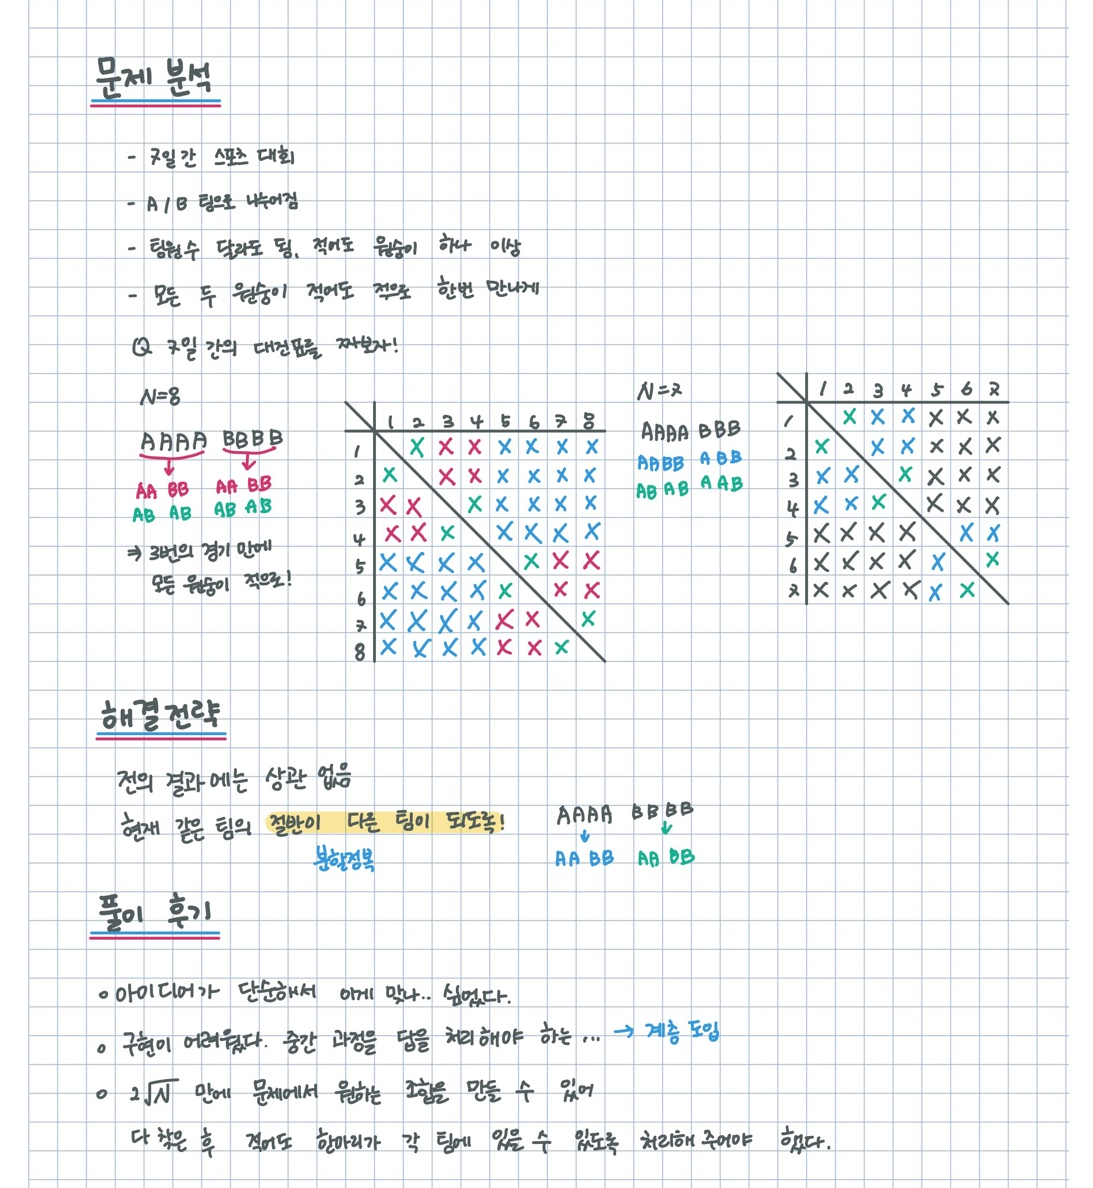 문제 분석
- 7일간 스포츠 대회
- A/B 팀으로 나누어짐
- 팀원수 달라도 됨, 적어도 원숭이 하나 이상
- 모든 두 원숭이 적어도 적으로 한번 만나게
Q 7일 간의 대진표를 짜보자!
N=8
AAAA BBBB
AA BB AA BB
AB AB AB AB
⇒ 3번의 경기 만에
모든 원숭이 적으로!
1 2 3 4 5 6 7 8
1 X X X X X X X
2 X X X X X X X
3 X X X X X X X
4 X X X X X X X
5 X X X X X X X
6 X X X X X X X
7 X X X X X X X
8 X X X X X X X
N=7
AAAA BBB
AABB ABB
AB AB AAB
1 2 3 4 5 6 7
1 X X X X X X
2 X X X X X X
3 X X X X X X
4 X X X X X X
5 X X X X X X
6 X X X X X X
7 X X X X X X
해결전략
전의 결과에는 상관 없음
현재 같은 팀의 절반이 다른 팀이 되도록!
분할정복
AAAA BBBB
AA BB AA BB
풀이 후기
○ 아이디어가 단순해서 이게 맞나.. 싶었다.
○ 구현이 어려웠다. 중간 과정을 답을 처리해야 하는 ... → 계층 도입
○ 2√N 만에 문제에서 원하는 조합을 만들 수 있어
다 찾은 후 적어도 한마리가 각 팀에 있을 수 있도록 처리해 주어야 했다.